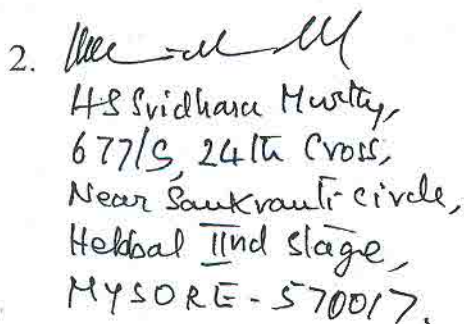 2.
HS Sridhara Murthy,
677/S, 24th Cross,
Near Sankranti circle,
Hebbal IInd stage,
MYSORE - 570017.